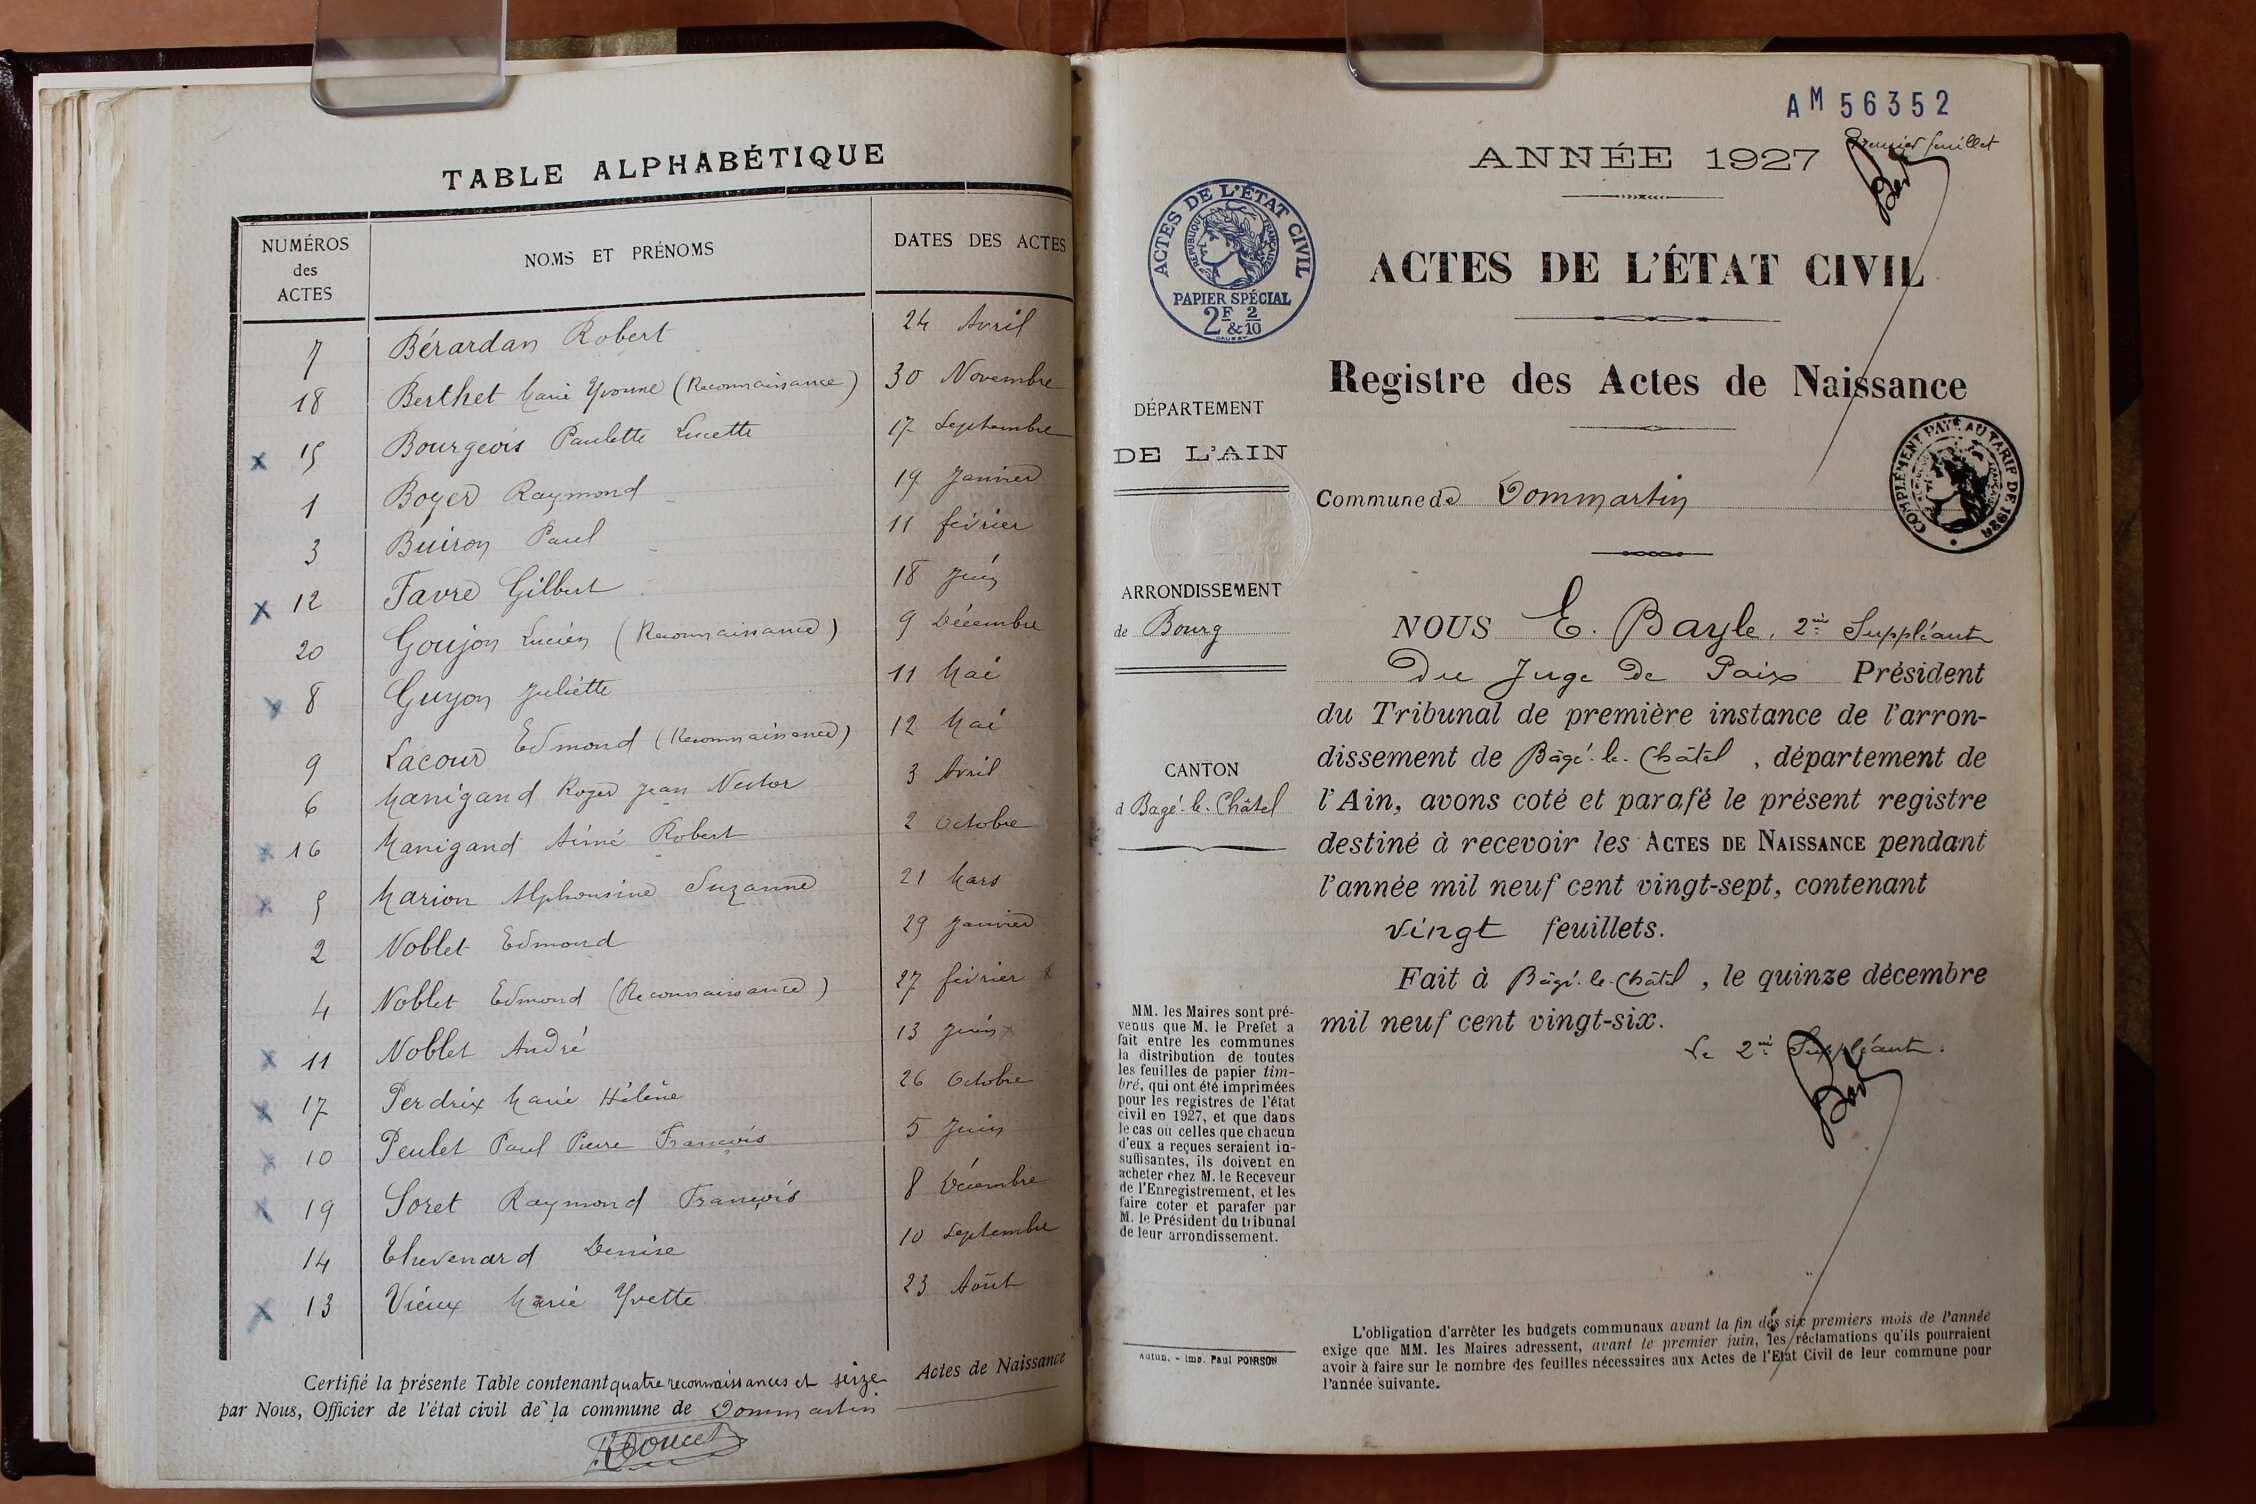 TABLE ALPHABÉTIQUE
NUMÉROS des ACTES NOMS ET PRÉNOMS DATES DES ACTES
7 Bérardan Robert 24 Avril
18 Berthet Marie Yvonne (Reconnaissance) 30 Novembre
x 15 Bourgeois Paulette Lucette 17 Septembre
1 Boyer Raymond 19 Janvier
3 Buiron Paul 11 février
x 12 Favre Gilbert 18 Juin
20 Goujon Lucien (Reconnaissance) 9 Décembre
x 8 Guyon Juliette 11 Mai
9 Lacour Edmond (Reconnaissance) 12 Mai
6 Manigand Roger Jean Nestor 3 Avril
x 16 Manigand Aimé Robert 2 Octobre
x 5 Marion Alphonsine Suzanne 21 Mars
2 Noblet Edmond 29 Janvier
4 Noblet Edmond (Reconnaissance) 27 février
x 11 Noblet André 13 Juin
x 17 Perdrix Marie Hélène 26 Octobre
x 10 Peulet Paul Pierre François 5 Juin
x 19 Soret Raymond François 8 Décembre
14 Thevenard Denise 10 Septembre
x 13 Vieux Marie Yvette 23 Août
Certifié la présente Table contenant quatre reconnaissances et seize Actes de Naissance
par Nous, Officier de l'état civil de la commune de Dommartin
AM 56352
Premier feuillet
ANNÉE 1927
ACTES DE L'ÉTAT CIVIL
RÉPUBLIQUE FRANÇAISE
PAPIER SPÉCIAL
2F & 2/10
ACTES DE L'ÉTAT CIVIL
Registre des Actes de Naissance
DÉPARTEMENT
DE L'AIN
COMPLÉMENT PAYÉ AU TARIF DE 1926
Commune de Dommartin
ARRONDISSEMENT
de Bourg
CANTON
d Bagé-le-Châtel
NOUS E. Bayle, 2me Suppléant
Du Juge de Paix Président
du Tribunal de première instance de l'arron-
dissement de Bâgé-le-Châtel, département de
l'Ain, avons coté et parafé le présent registre
destiné à recevoir les ACTES DE NAISSANCE pendant
l'année mil neuf cent vingt-sept, contenant
vingt feuillets.
Fait à Bâgé-le-Châtel, le quinze décembre
mil neuf cent vingt-six.
Le 2me Suppléant.
MM. les Maires sont pré-
venus que M. le Préfet a
fait entre les communes
la distribution de toutes
les feuilles de papier tim-
bré, qui ont été imprimées
pour les registres de l'état
civil en 1927, et que dans
le cas où celles que chacun
d'eux a reçues seraient in-
suffisantes, ils doivent en
acheter chez M. le Receveur
de l'Enregistrement, et les
faire coter et parafer par
M. le Président du tribunal
de leur arrondissement.
Autun. - Imp. Paul POIRSON
L'obligation d'arrêter les budgets communaux avant la fin des six premiers mois de l'année
exige que MM. les Maires adressent, avant le premier juin, les réclamations qu'ils pourraient
avoir à faire sur le nombre des feuilles nécessaires aux Actes de l'Etat Civil de leur commune pour
l'année suivante.